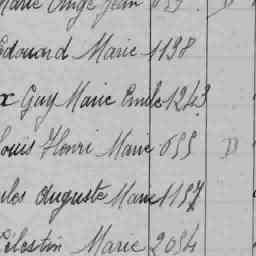 Marie Ange Jean 
Edouard Marie 1198
x Guy Marie Emile 1243
Louis Henri Marie 655 D
Jules Auguste Marie 1157
Célestin Marie 2034